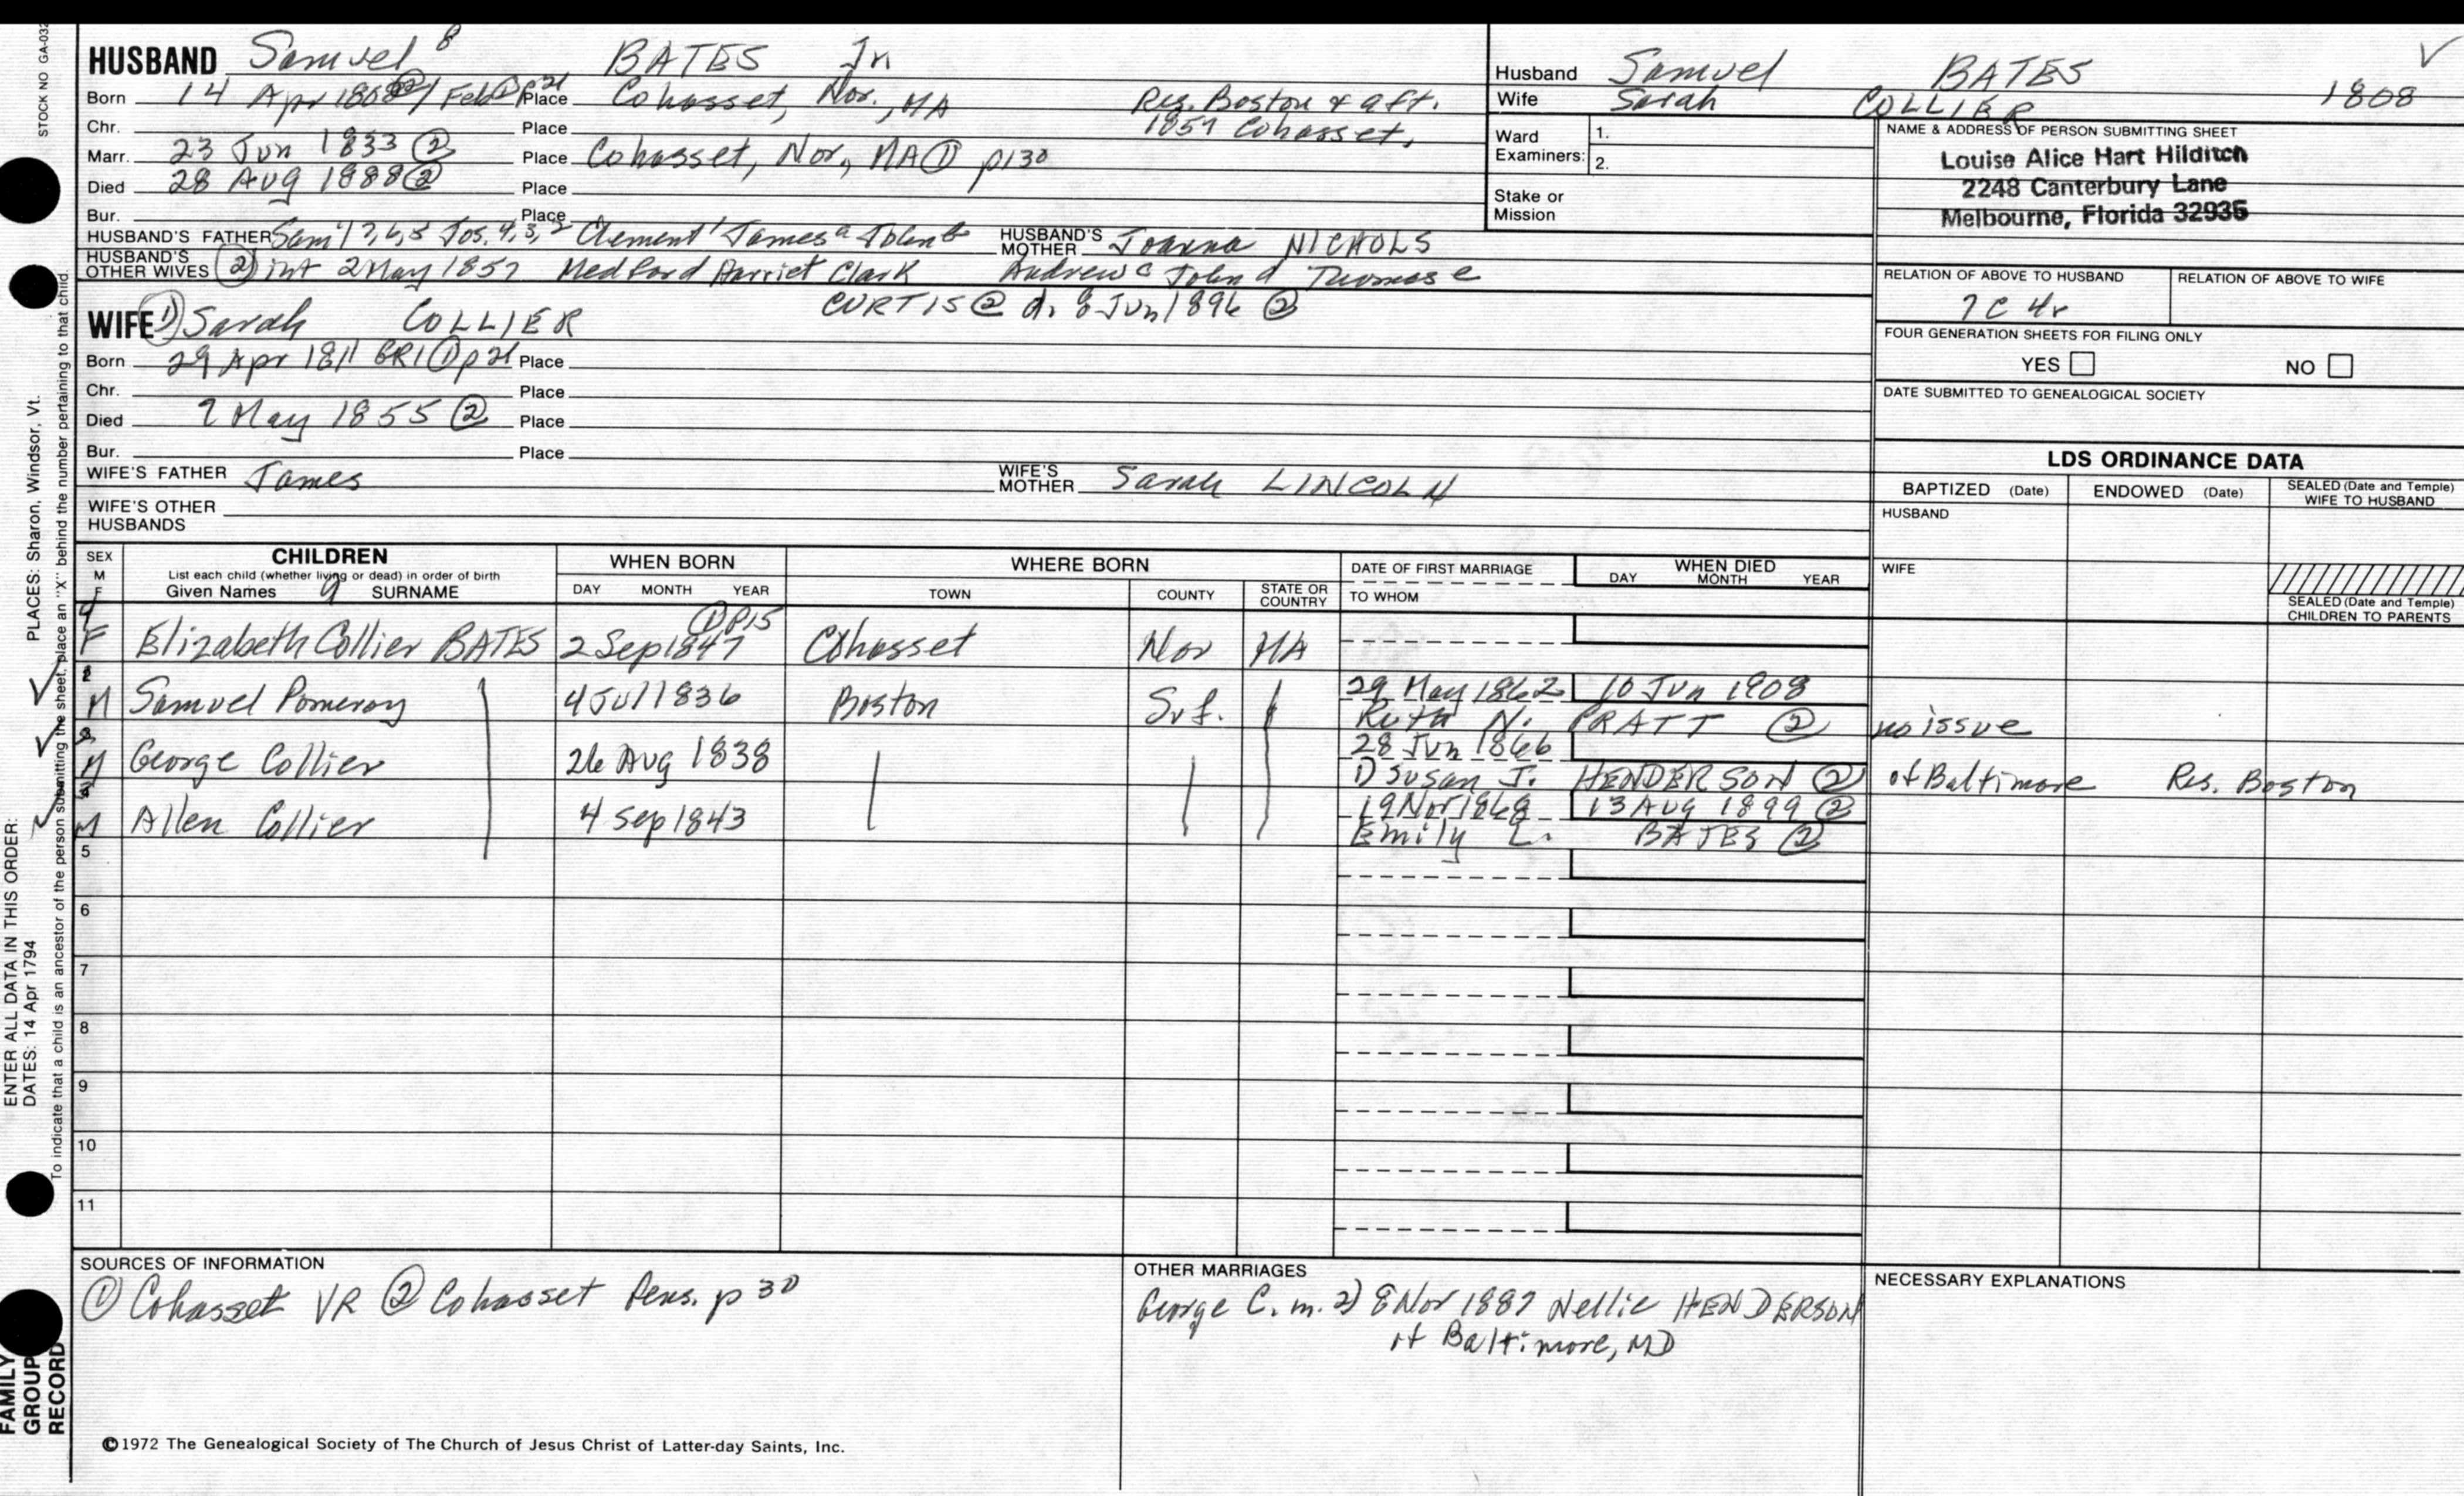 STOCK NO GA-032
HUSBAND Samuel 8 BATES Jr
Born 14 Apr 1808 ② / Feb ① p21 Place Cohasset, Nor., MA Res. Boston & aft.
Chr. Place 1857 Cohasset,
Marr. 23 Jun 1833 ② Place Cohasset, Nor., MA ① p130
Died 28 Aug 1888 ② Place
Bur. Place
HUSBAND'S FATHER Sam'l 7, 6, 5 Jos. 4, 3, 2 Clement 1 James a John b HUSBAND'S MOTHER Joanna NICHOLS
HUSBAND'S OTHER WIVES ② int 2 May 1857 Medford Harriet Clark Andrew c John d Thomas e
CURTIS ② d. 8 Jun 1896 ②
WIFE ① Sarah COLLIER
Born 29 Apr 1811 GR1 ① p21 Place
Chr. Place
Died 2 May 1855 ② Place
Bur. Place
WIFE'S FATHER James WIFE'S MOTHER Sarah LINCOLN
WIFE'S OTHER HUSBANDS
Husband Samuel BATES
Wife Sarah COLLIER 1808
Ward Examiners: 1.
2.
Stake or Mission
NAME & ADDRESS OF PERSON SUBMITTING SHEET
Louise Alice Hart Hilditch
2248 Canterbury Lane
Melbourne, Florida 32935
RELATION OF ABOVE TO HUSBAND RELATION OF ABOVE TO WIFE
7C 4r
FOUR GENERATION SHEETS FOR FILING ONLY
YES NO
DATE SUBMITTED TO GENEALOGICAL SOCIETY
LDS ORDINANCE DATA
BAPTIZED (Date) ENDOWED (Date) SEALED (Date and Temple) WIFE TO HUSBAND
HUSBAND
WIFE
SEALED (Date and Temple) CHILDREN TO PARENTS
SEX M F CHILDREN WHEN BORN WHERE BORN DATE OF FIRST MARRIAGE WHEN DIED
List each child (whether living or dead) in order of birth DAY MONTH YEAR TOWN COUNTY STATE OR COUNTRY TO WHOM DAY MONTH YEAR
Given Names 9 SURNAME
① p15
4 F Elizabeth Collier BATES 2 Sep 1847 Cohasset Nor MA
M Samuel Pomeroy 4 Jul 1836 Boston Suf. 29 May 1862 10 Jun 1908
Ruth N. PRATT ② no issue
M George Collier 26 Aug 1838 28 Jun 1866
① Susan J. HENDERSON ② of Baltimore Res. Boston
M Allen Collier 4 Sep 1843 19 Nov 1868 13 Aug 1899 ②
Emily L. BATES ②
5
6
7
8
9
10
11
SOURCES OF INFORMATION
① Cohasset VR ② Cohasset Gens. p 30
OTHER MARRIAGES
George C. m. 2) 8 Nov 1887 Nellie HENDERSON
of Baltimore, MD
NECESSARY EXPLANATIONS
©1972 The Genealogical Society of The Church of Jesus Christ of Latter-day Saints, Inc.
ENTER ALL DATA IN THIS ORDER:
DATES: 14 Apr 1794 PLACES: Sharon, Windsor, Vt.
To indicate that a child is an ancestor of the person submitting the sheet, place an "X" behind the number pertaining to that child.
FAMILY
GROUP
RECORD